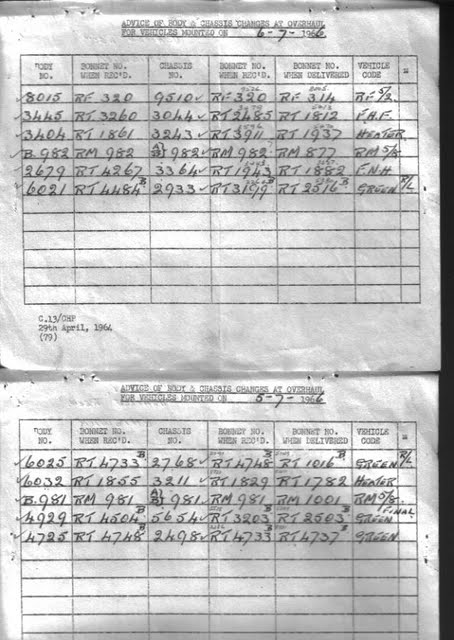 ADVICE OF BODY & CHASSIS CHANGES AT OVERHAUL
FOR VEHICLES MOUNTED ON 6-7-1966
BODY NO. BONNET NO. WHEN REC'D. CHASSIS NO. BONNET NO. WHEN REC'D. BONNET NO. WHEN DELIVERED VEHICLE CODE
8015 RF 320 9510 RF 320 RF 314 RF 5/2
3445 RT 3260 3044 RT 2485 RT 1812 F.H.F.
3404 RT 1861 3243 RT 3911 RT 1937 HEATER
B.982 RM 982 A) 982 RM 982 RM 877 RM 5/8
2679 RT 4267 3364 RT 1943 RT 1882 F.N.H
6021 RT 4484 B 2933 RT 3199 B RT 2516 B GREEN R/L
C.13/CHP
29th April, 1964
(79)
ADVICE OF BODY & CHASSIS CHANGES AT OVERHAUL
FOR VEHICLES MOUNTED ON 5-7-1966
BODY NO. BONNET NO. WHEN REC'D. CHASSIS NO. BONNET NO. WHEN REC'D. BONNET NO. WHEN DELIVERED VEHICLE CODE
6025 RT 4733 B 2768 RT 4748 B RT 1016 B GREEN R/L
6032 RT 1855 3211 RT 1829 RT 1782 HEATER
B.981 RM 981 A) 981 RM 981 RM 1001 RM 5/8
4929 RT 4504 B 5654 RT 3203 B RT 2503 B GREEN FINAL
4725 RT 4748 B 2498 RT 4733 B RT 4737 B GREEN